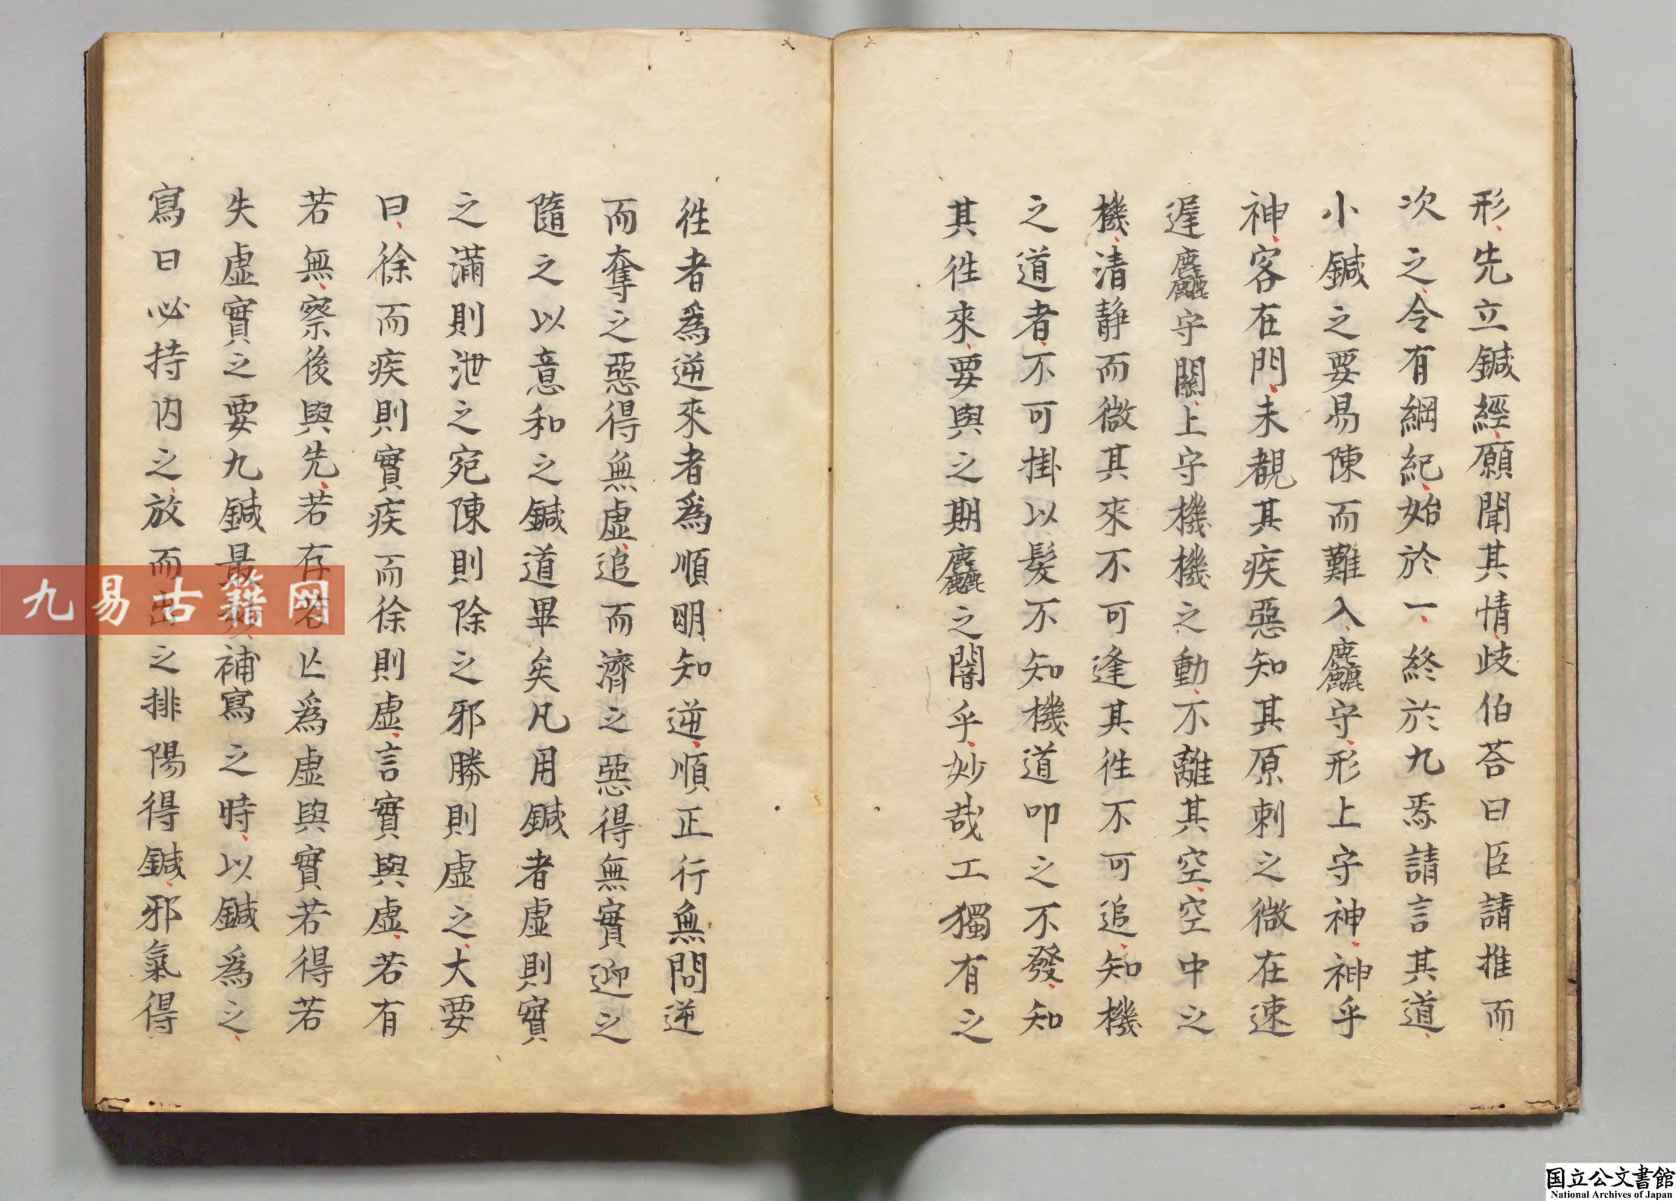 形先立鍼經願聞其情歧伯荅曰臣請推而
次之令有綱紀始於一終於九焉請言其道
小鍼之要易陳而難入麤守形上守神神乎
神客在門未覩其疾惡知其原刺之微在速
遲麤守關上守機機之動不離其空空中之
機清静而微其來不可逢其往不可追知機
之道者不可掛以髮不知機道叩之不發知
其往來要與之期麤之闇乎妙哉工獨有之
往者為逆來者為順明知逆順正行無問逆
而奪之惡得無虛追而濟之惡得無實迎之
隨之以意和之鍼道畢矣凡用鍼者虛則實
之滿則泄之宛陳則除之邪勝則虛之大要
曰徐而疾則實疾而徐則虛言實與虛若有
若無察後與先若存若亡為虛與實若得若
失虛實之要九鍼最妙補寫之時以鍼為之
寫曰必持內之放而出之排陽得鍼邪氣得
九易古籍网
国立公文書館
National Archives of Japan